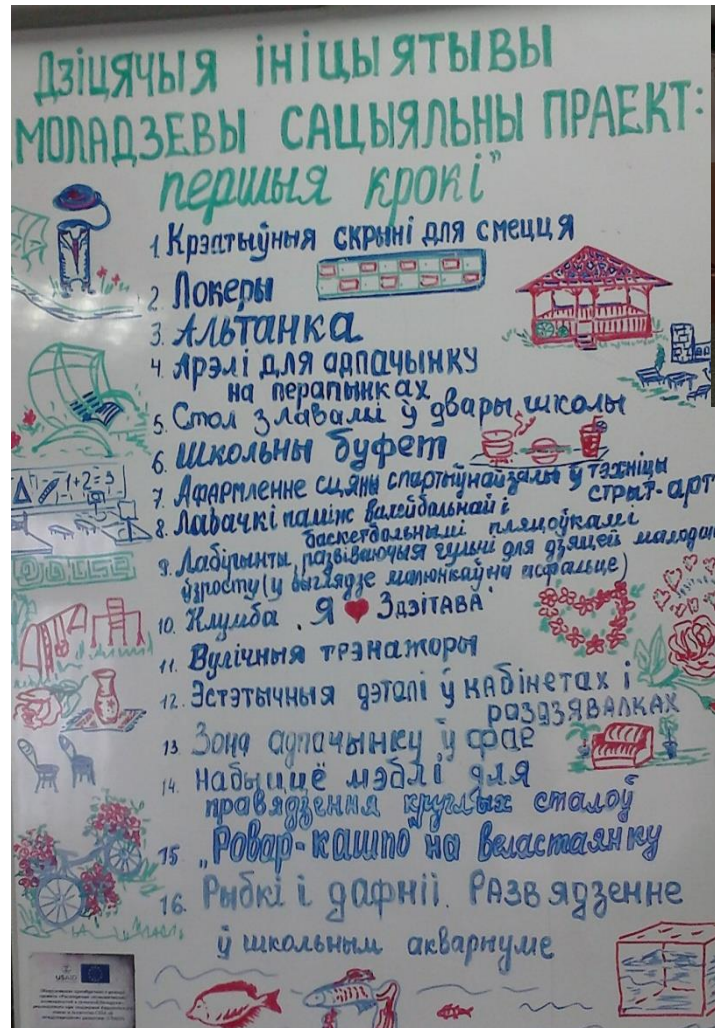 Дзіцячыя ініцыятывы
"Моладзевы сацыяльны праект:
першыя крокі"
1 Крэатыўныя скрыні для смецця
2. Локеры
3. Альтанка
4. Арэлі для адпачынку
на перапынках
5. Стол з лавамі ў двары школы
6. Школьны буфет
7. Афармленне сцяны спартыўнай залы ў тэхніцы
стрыт-арт
8. Лавачкі паміж валейбольнай і
баскетбольнымі пляцоўкамі
9. Лабірынты, развіваючыя гульні для дзяцей малодшага
ўзросту (у выглядзе малюнкаў на асфальце)
10. Клумба „Я ❤ Здзітава"
11. Вулічныя трэнажоры
12. Эстэтычныя дэталі ў кабінетах і
раздзявалках
13 Зона адпачынку ў фае
14. Набыццё мэблі для
правядзення круглых сталоў
15 „Ровар-кашпо на веластаянку
16. Рыбкі і дафніі. Развядзенне
ў школьным акварыуме
1+2=3
USAID